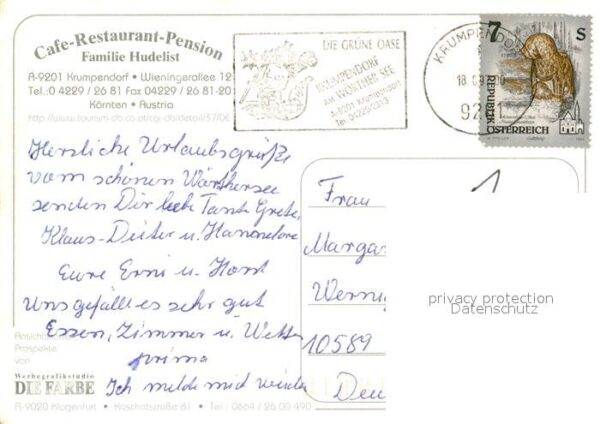 Cafe-Restaurant-Pension
Familie Hudelist
A-9201 Krumpendorf • Wieningerallee 12
Tel.: 0 4229 / 26 81 Fax 04229 / 26 81-20
Kärnten • Austria
DIE GRÜNE OASE
KRUMPENDORF
AM WÖRTHER SEE
A-9201 Krumpendorf
KRUMPENDORF
18.
7 S
REPUBLIK
ÖSTERREICH
Herzliche Urlaubsgrüße
vom schönen Wörthersee
senden Dir liebe Tante Grete,
Klaus-Dieter u. Hannelore
Eure Erni u. Horst
Uns gefällt es sehr gut
Essen, Zimmer u. Wetter
prima
Ich melde mich wieder
1
Frau
Margar
Werni
10589
Deu
privacy protection
Datenschutz
Ansichtskarten
Prospekte
von
Werbegrafikstudio
DIE FARBE
A-9020 Klagenfurt • Koschatstraße 81 • Tel.: 0664 / 26 00 490